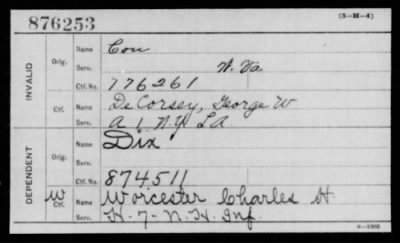 876253
(3—H—4)
INVALID
Orig.
Name Cou
Serv. W. Va.
Ctf. No. 776261
Ctf.
Name De Corsey, George W
Serv. A 1 N.Y. L A
DEPENDENT
Orig.
Name Dix
Serv.
Ctf. No. 874511
W Ctf.
Name Worcester Charles H
Serv. H. 7 - N. H. Inf.